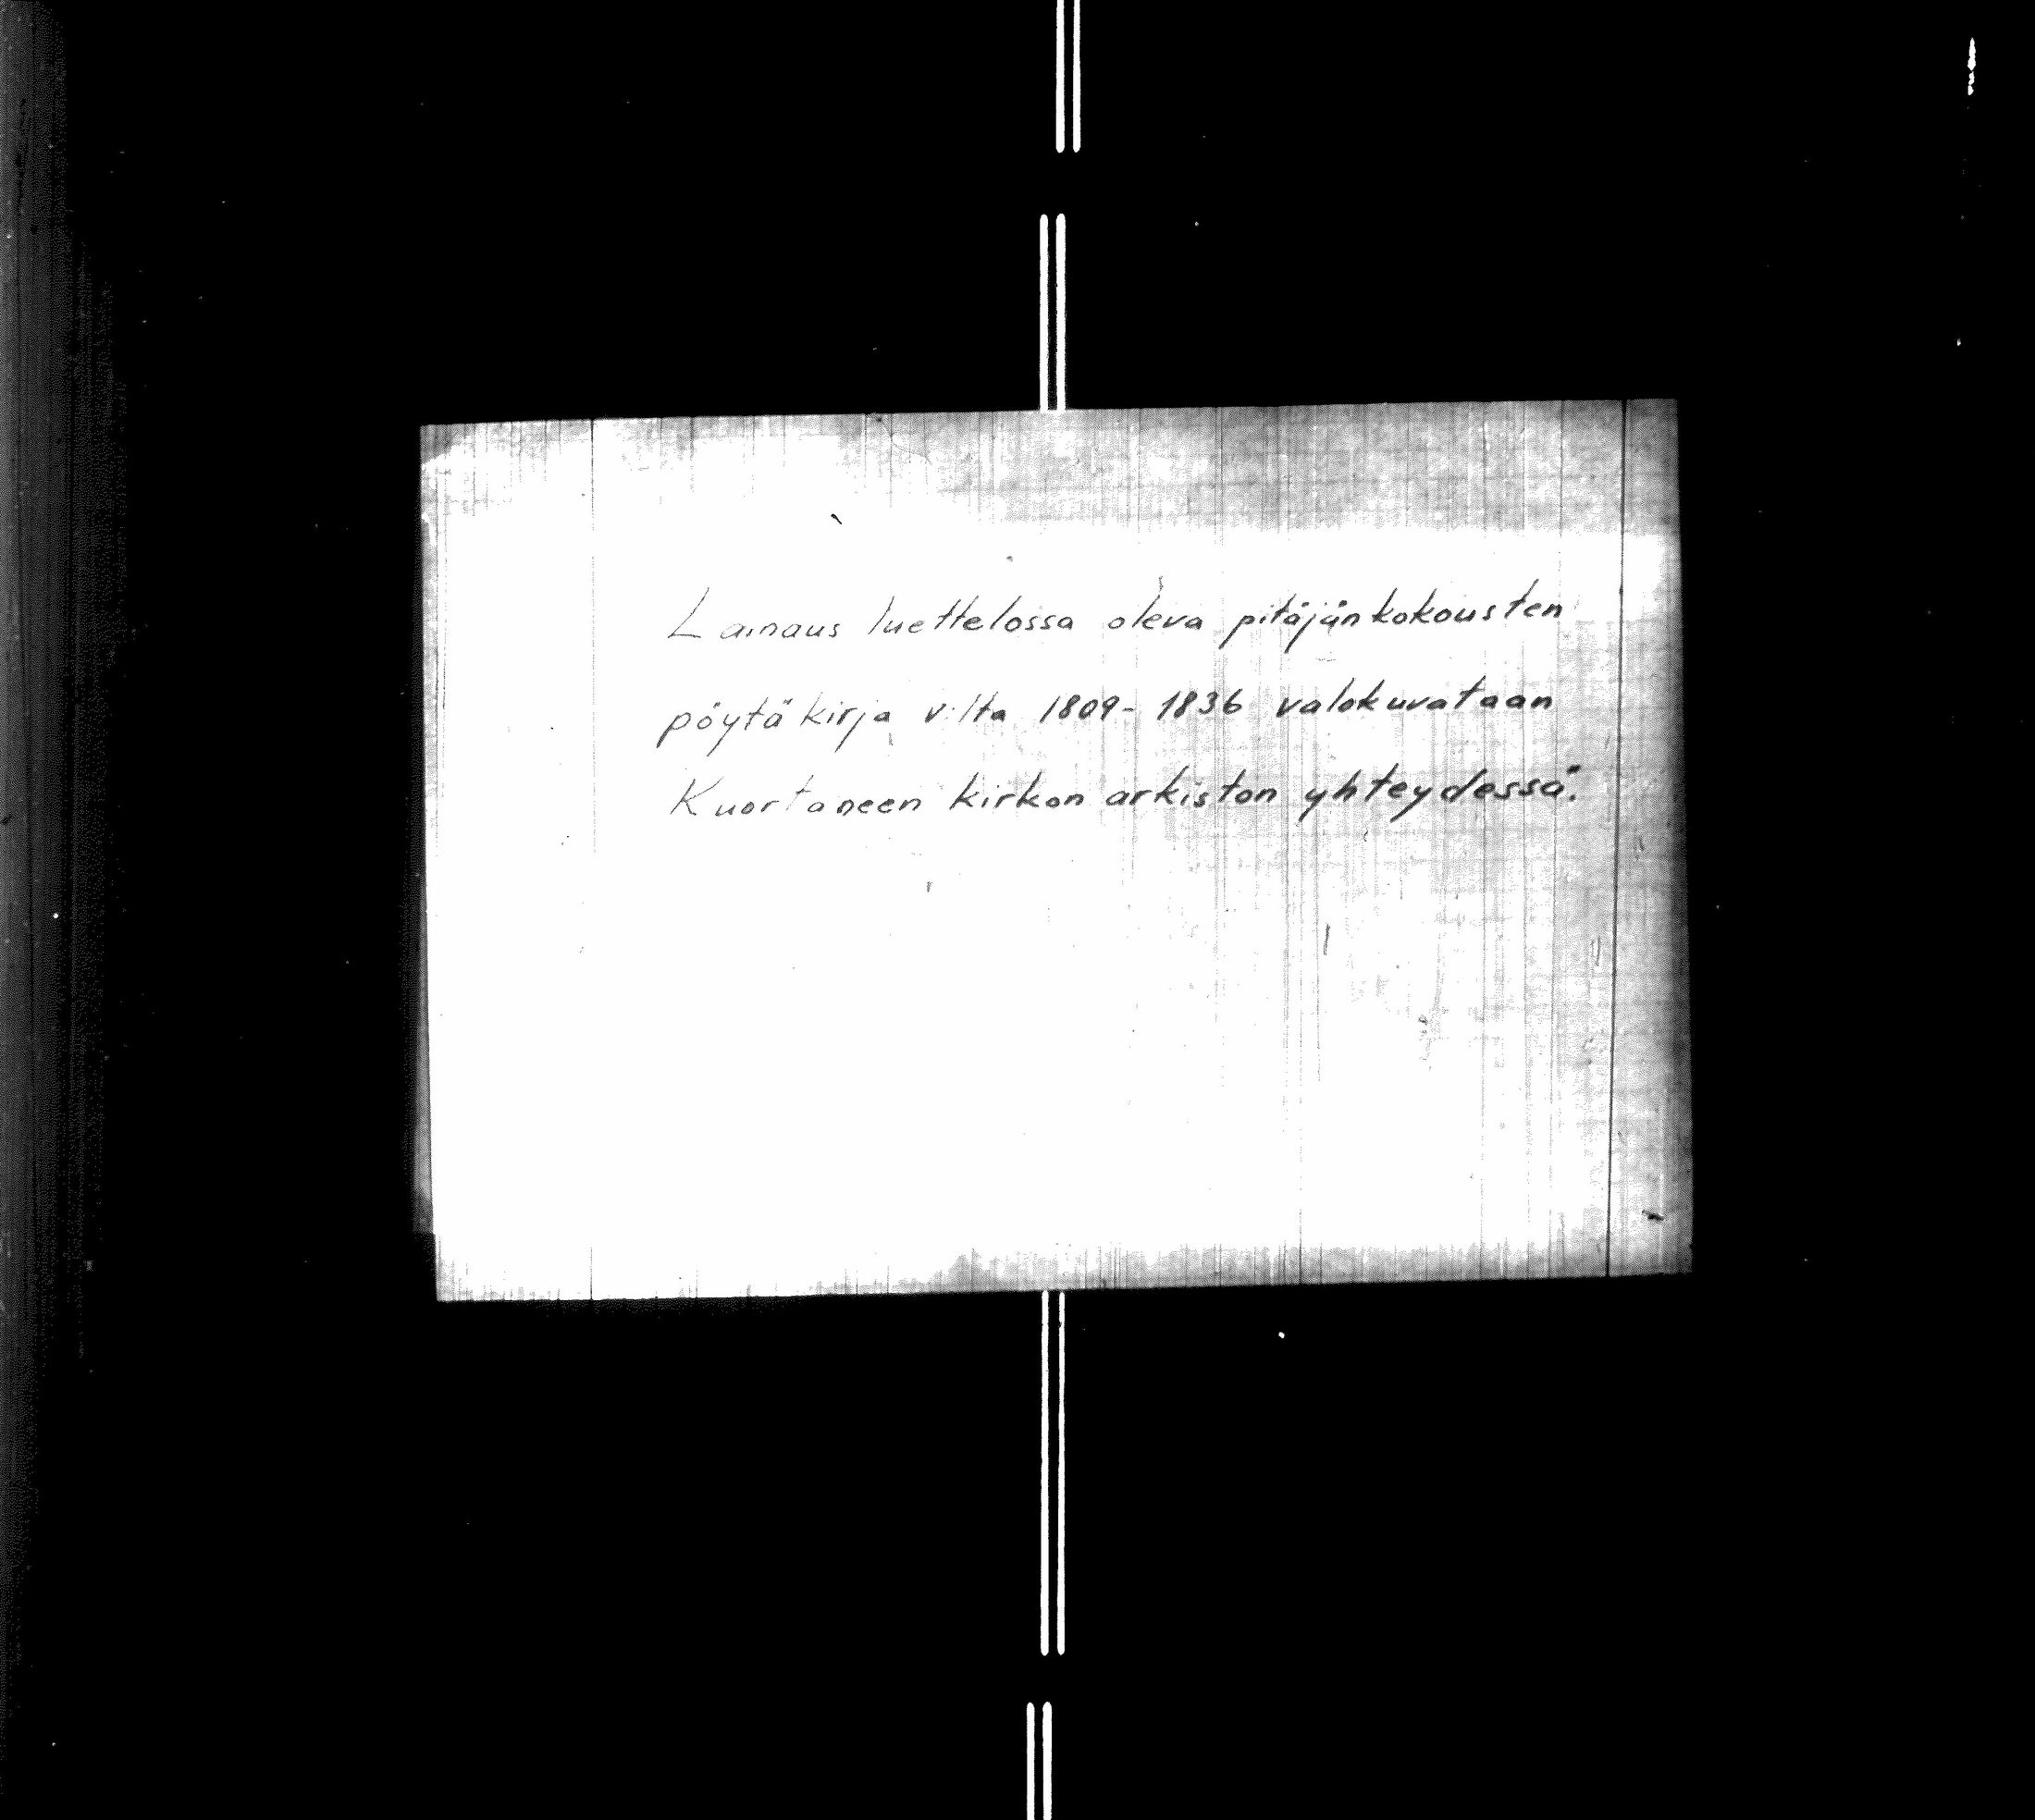 Lainaus luettelossa oleva pitäjänkokousten
pöytäkirja v:lta 1809-1836 valokuvataan
Kuortaneen kirkon arkiston yhteydessä.